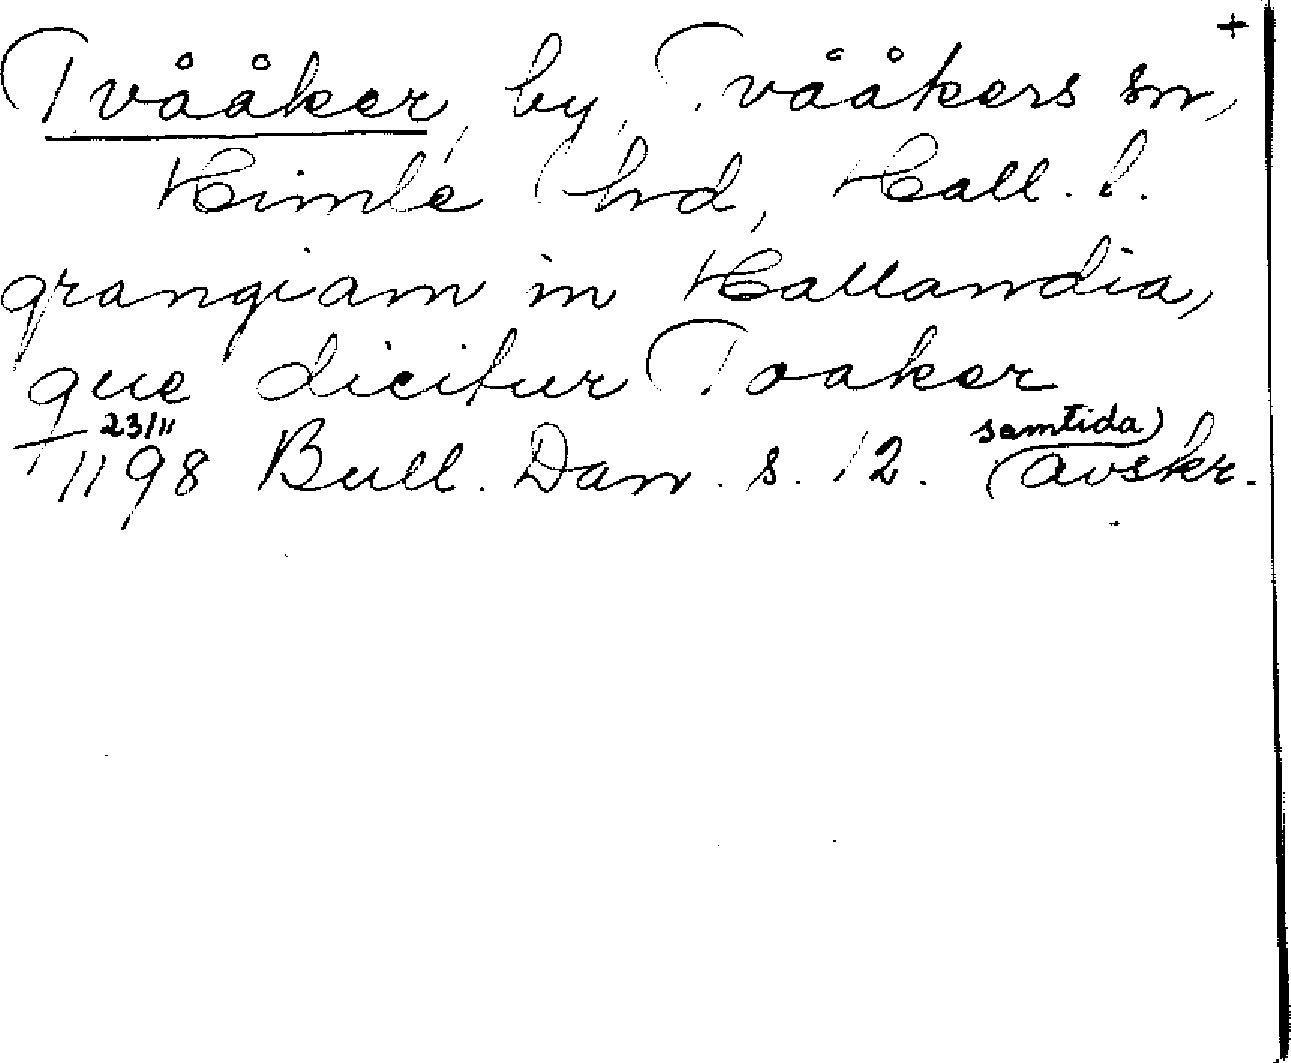 +
Tvååker, by, Tvååkers sn,
Himle hd, Hall. l.
grangiam in Hallandia,
que dicitur Toaker
23/11 samtida)
1198 Bull. Dan. s. 12. (avskr.